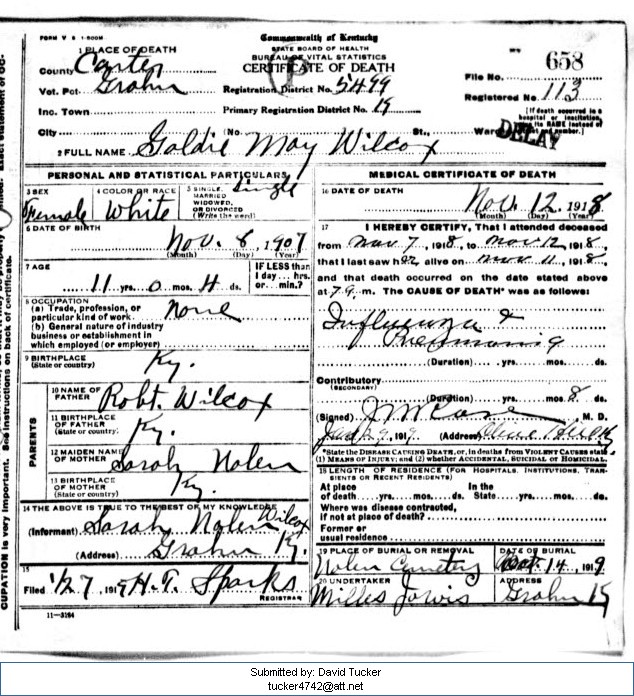 FORM V S 1-500M
Commonwealth of Kentucky
STATE BOARD OF HEALTH
BUREAU OF VITAL STATISTICS
CERTIFICATE OF DEATH
1 PLACE OF DEATH
County Carter
Vot. Pct. Grahn
Registration District No. 5499
File No. 658
Inc. Town
Primary Registration District No. 19
Registered No. 113
City (No. St., Ward)
[If death occurred in a hospital or institution, give its NAME instead of street and number.]
DELAY
2 FULL NAME Goldie May Wilcox
PERSONAL AND STATISTICAL PARTICULARS
3 SEX Female
4 COLOR OR RACE White
5 SINGLE, MARRIED WIDOWED, OR DIVORCED (Write the word) Single
6 DATE OF BIRTH
Nov. 8, 1907
(Month) (Day) (Year)
7 AGE
11 yrs. 0 mos. 4 ds.
IF LESS than 1 day... hrs. or... min.?
8 OCCUPATION
(a) Trade, profession, or particular kind of work. none
(b) General nature of industry
business or establishment in
which employed (or employer)
9 BIRTHPLACE
(State or country) Ky.
PARENTS
10 NAME OF FATHER Robt. Wilcox
11 BIRTHPLACE OF FATHER (State or country) Ky.
12 MAIDEN NAME OF MOTHER Sarah Nolen
13 BIRTHPLACE OF MOTHER (State or country) Ky.
14 THE ABOVE IS TRUE TO THE BEST OF MY KNOWLEDGE
(Informant) Sarah Nolen Wilcox
(Address) Grahn Ky.
15
Filed 1/27, 1919 H.T. Sparks
REGISTRAR
11-3184
MEDICAL CERTIFICATE OF DEATH
16 DATE OF DEATH
Nov. 12, 1918
(Month) (Day) (Year)
17 I HEREBY CERTIFY, That I attended deceased
from Nov 7, 1918, to Nov 12, 1918,
that I last saw her alive on Nov 11, 1918,
and that death occurred on the date stated above
at m. The CAUSE OF DEATH* was as follows:
Influenza &
Pneumonia
(Duration) yrs. mos. ds.
Contributory
(SECONDARY)
(Duration) yrs. mos. 8 ds.
(Signed) M. D.
1919 (Address) Olive Hill Ky
*State the DISEASE CAUSING DEATH, or, in deaths from VIOLENT CAUSES state
(1) MEANS OF INJURY; and (2) whether ACCIDENTAL, SUICIDAL or HOMICIDAL.
18 LENGTH OF RESIDENCE (FOR HOSPITALS, INSTITUTIONS, TRANSIENTS OR RECENT RESIDENTS)
At place of death yrs. mos. ds. In the State yrs. mos. ds.
Where was disease contracted,
if not at place of death?
Former or
usual residence
19 PLACE OF BURIAL OR REMOVAL
Nolen Cemetery
DATE OF BURIAL
14, 1919
20 UNDERTAKER
Milles Jarvis
ADDRESS
Grahn Ky
CUPATION is very important. See instructions on back of certificate.
Submitted by: David Tucker
tucker4742@att.net